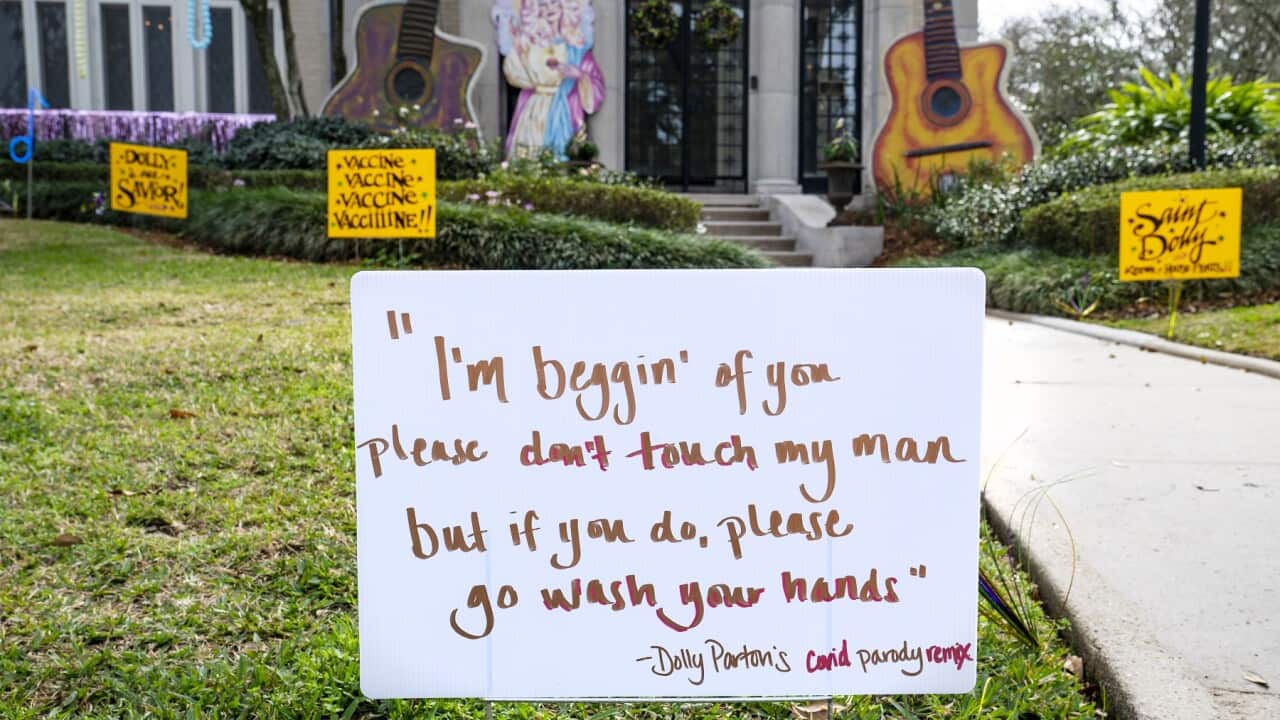 DOLLY
is our
SAVIOR!
VACCINE
VACCINE
VACCINE
VACCIIIINE!!
Saint
Dolly
"I'm beggin' of you
please don't touch my man
but if you do, please
go wash your hands"
-Dolly Parton's covid parody remix